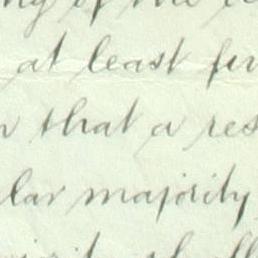 of the
at least
that a res
lar majority